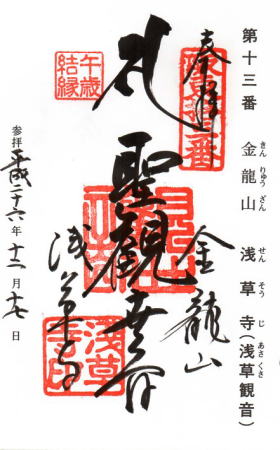 第十三番 金龍山 浅草寺(浅草観音)
きん りゅう ざん せん そう じ あさくさ
奉拝
金龍山
聖観世音
午歳
結縁
浅草寺
浅草
寺印
参拝 平成二十六年 十二月 十七日